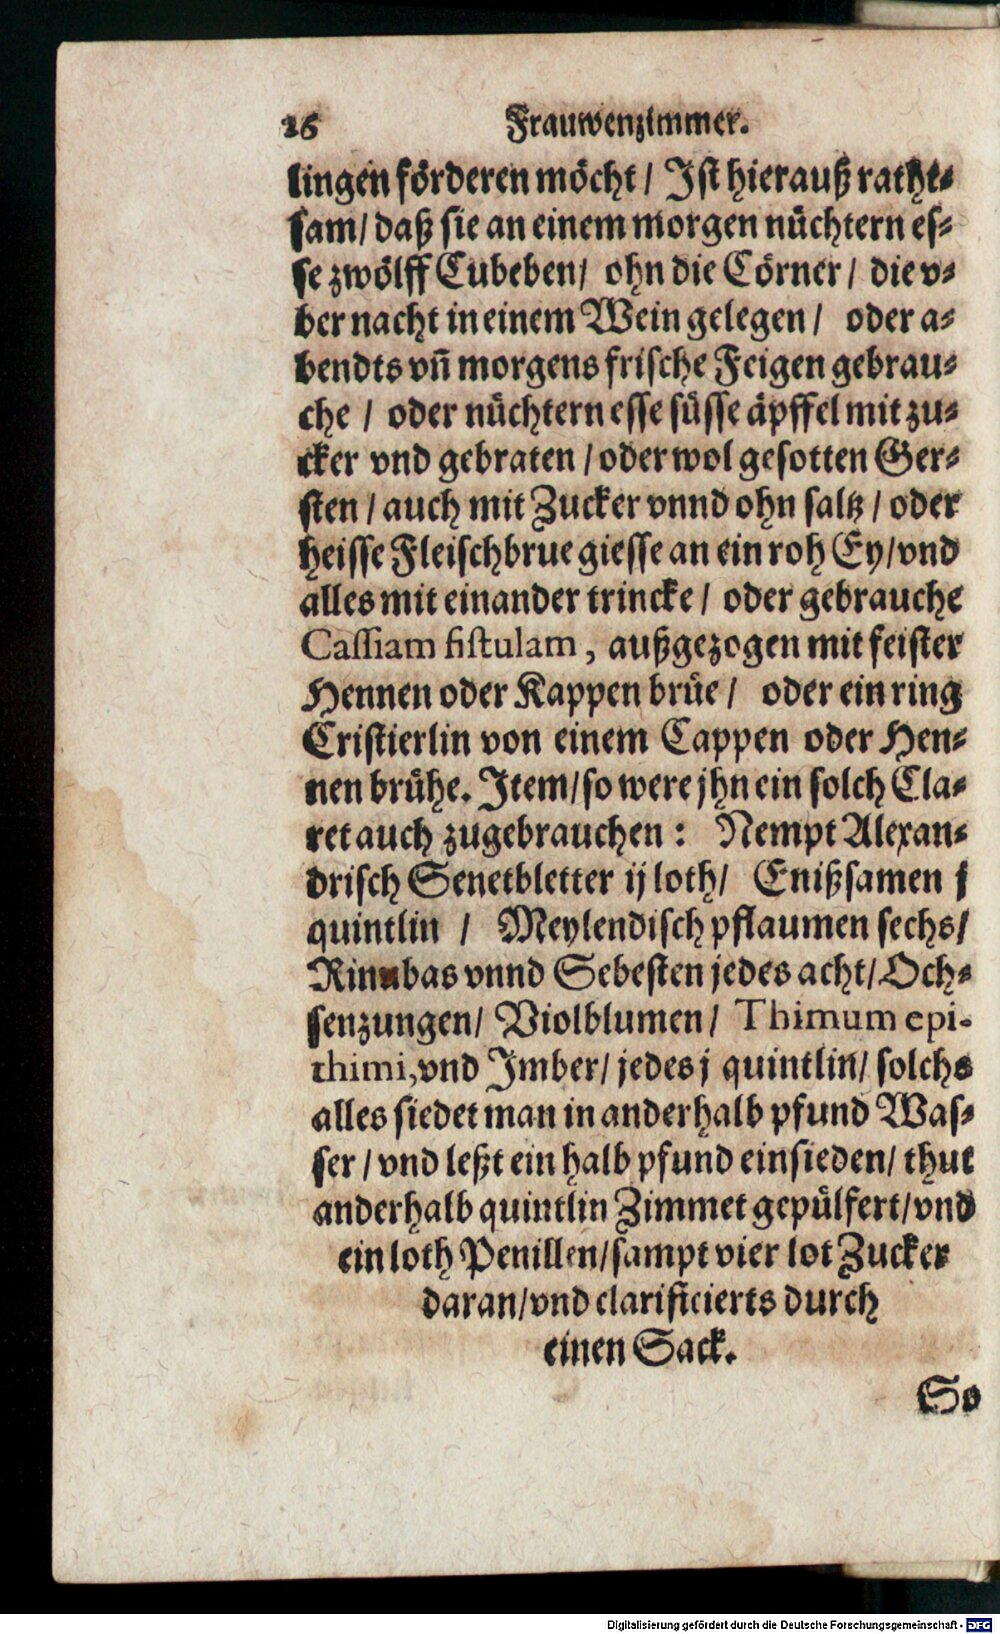 26 Frauwenzimmer.
lingen förderen möcht / Jst hierauß raht-
sam / daß sie an einem morgen nüchtern es-
se zwölff Cubeben / ohn die Cörner / die v-
ber nacht in einem Wein gelegen / oder a-
bendts vn̄ morgens frische Feigen gebrau-
che / oder nüchtern esse süsse äpffel mit zu-
cker vnd gebraten / oder wol gesotten Ger-
sten / auch mit Zucker vnnd ohn saltz / oder
heisse Fleischbrue giesse an ein roh Ey / vnd
alles mit einander trincke / oder gebrauche
Cassiam fistulam, außgezogen mit feister
Hennen oder Kappen brüe / oder ein ring
Cristierlin von einem Cappen oder Hen-
nen brühe. Jtem / so were jhn ein solch Cla-
ret auch zugebrauchen : Nempt Alexan-
drisch Senetbletter ij loth / Enißsamen j
quintlin / Meylendisch pflaumen sechs /
vnnd Sebesten jedes acht / Och-
senzungen / Violblumen / Thimum epi-
thimi, vnd Jmber / jedes j quintlin / solchs
alles siedet man in anderhalb pfund Was-
ser / vnd leßt ein halb pfund einsieden / thut
anderhalb quintlin Zimmet gepülfert / vnd
ein loth Penillen / sampt vier lot Zucker
daran / vnd clarificierts durch
einen Sack.
So
Digitalisierung gefördert durch die Deutsche Forschungsgemeinschaft - DFG